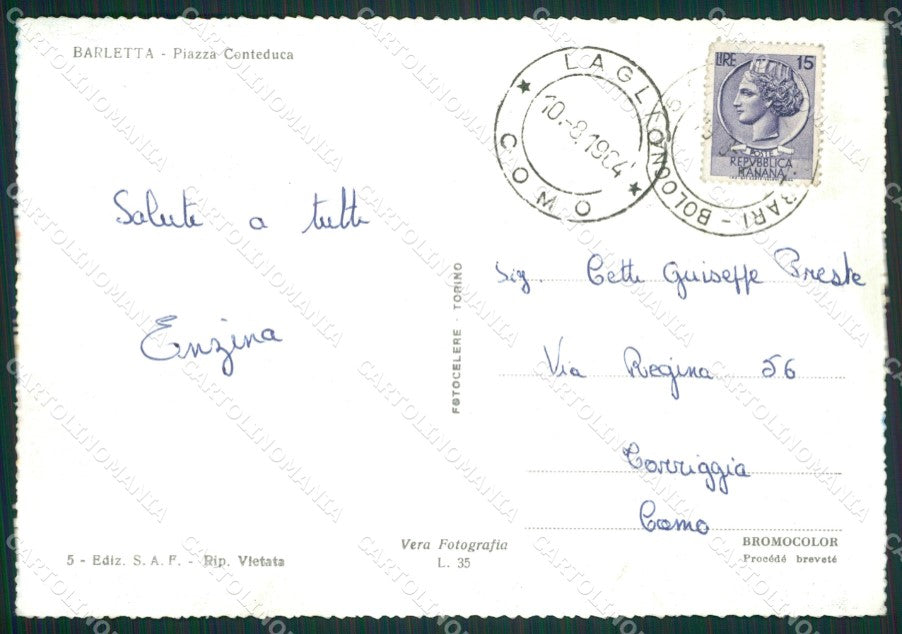 BARLETTA - Piazza Conteduca
LAGLIO
10.-8.1964
COMO
BARI - BOLOGNA
LIRE 15
POSTE
REPVBBLICA
ITALIANA
Saluti a tutti
Enzina
Sig. Cetti Guiseppe Breste
Via Regina 56
Corriggia
Como
FOTOCELERE - TORINO
5 - Ediz. S. A. F. - Rip. Vietata
Vera Fotografia
L. 35
BROMOCOLOR
Procédé breveté
CARTOLINOMANIA